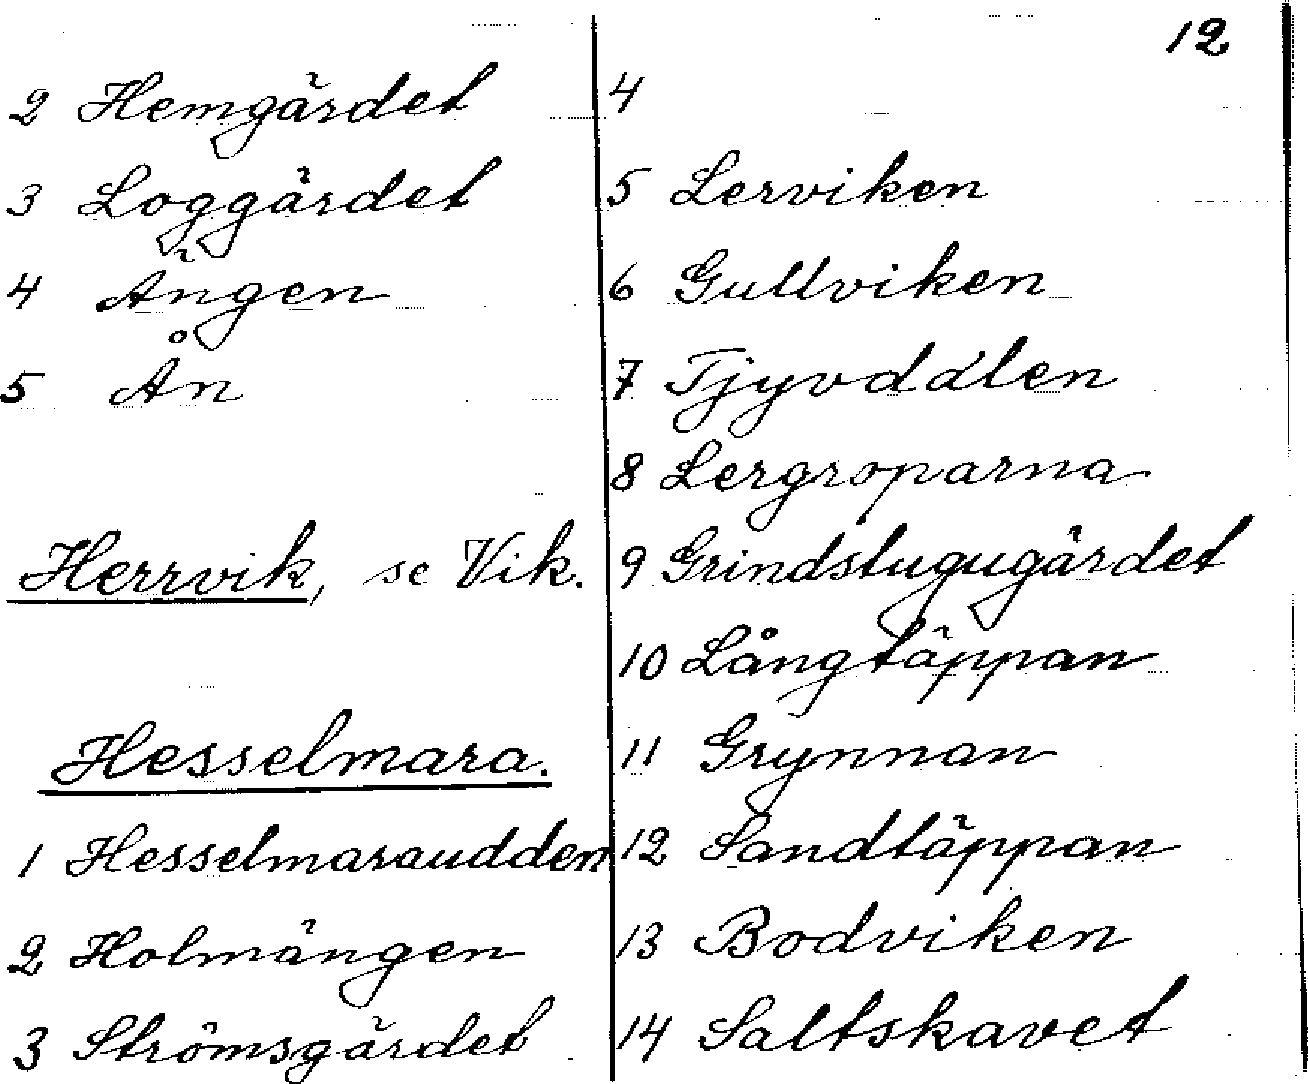 12
2 Hemgärdet
3 Loggärdet
4 Ängen
5 Ån
Herrvik, se Vik.
Hesselmara.
1 Hesselmaraudden
2 Holmängen
3 Strömsgärdet
4
5 Lerviken
6 Gullviken
7 Tjyvdalen
8 Lergroparna
9 Grindstugugärdet
10 Långtäppan
11 Grynnan
12 Sandtäppan
13 Bodviken
14 Saltskavet